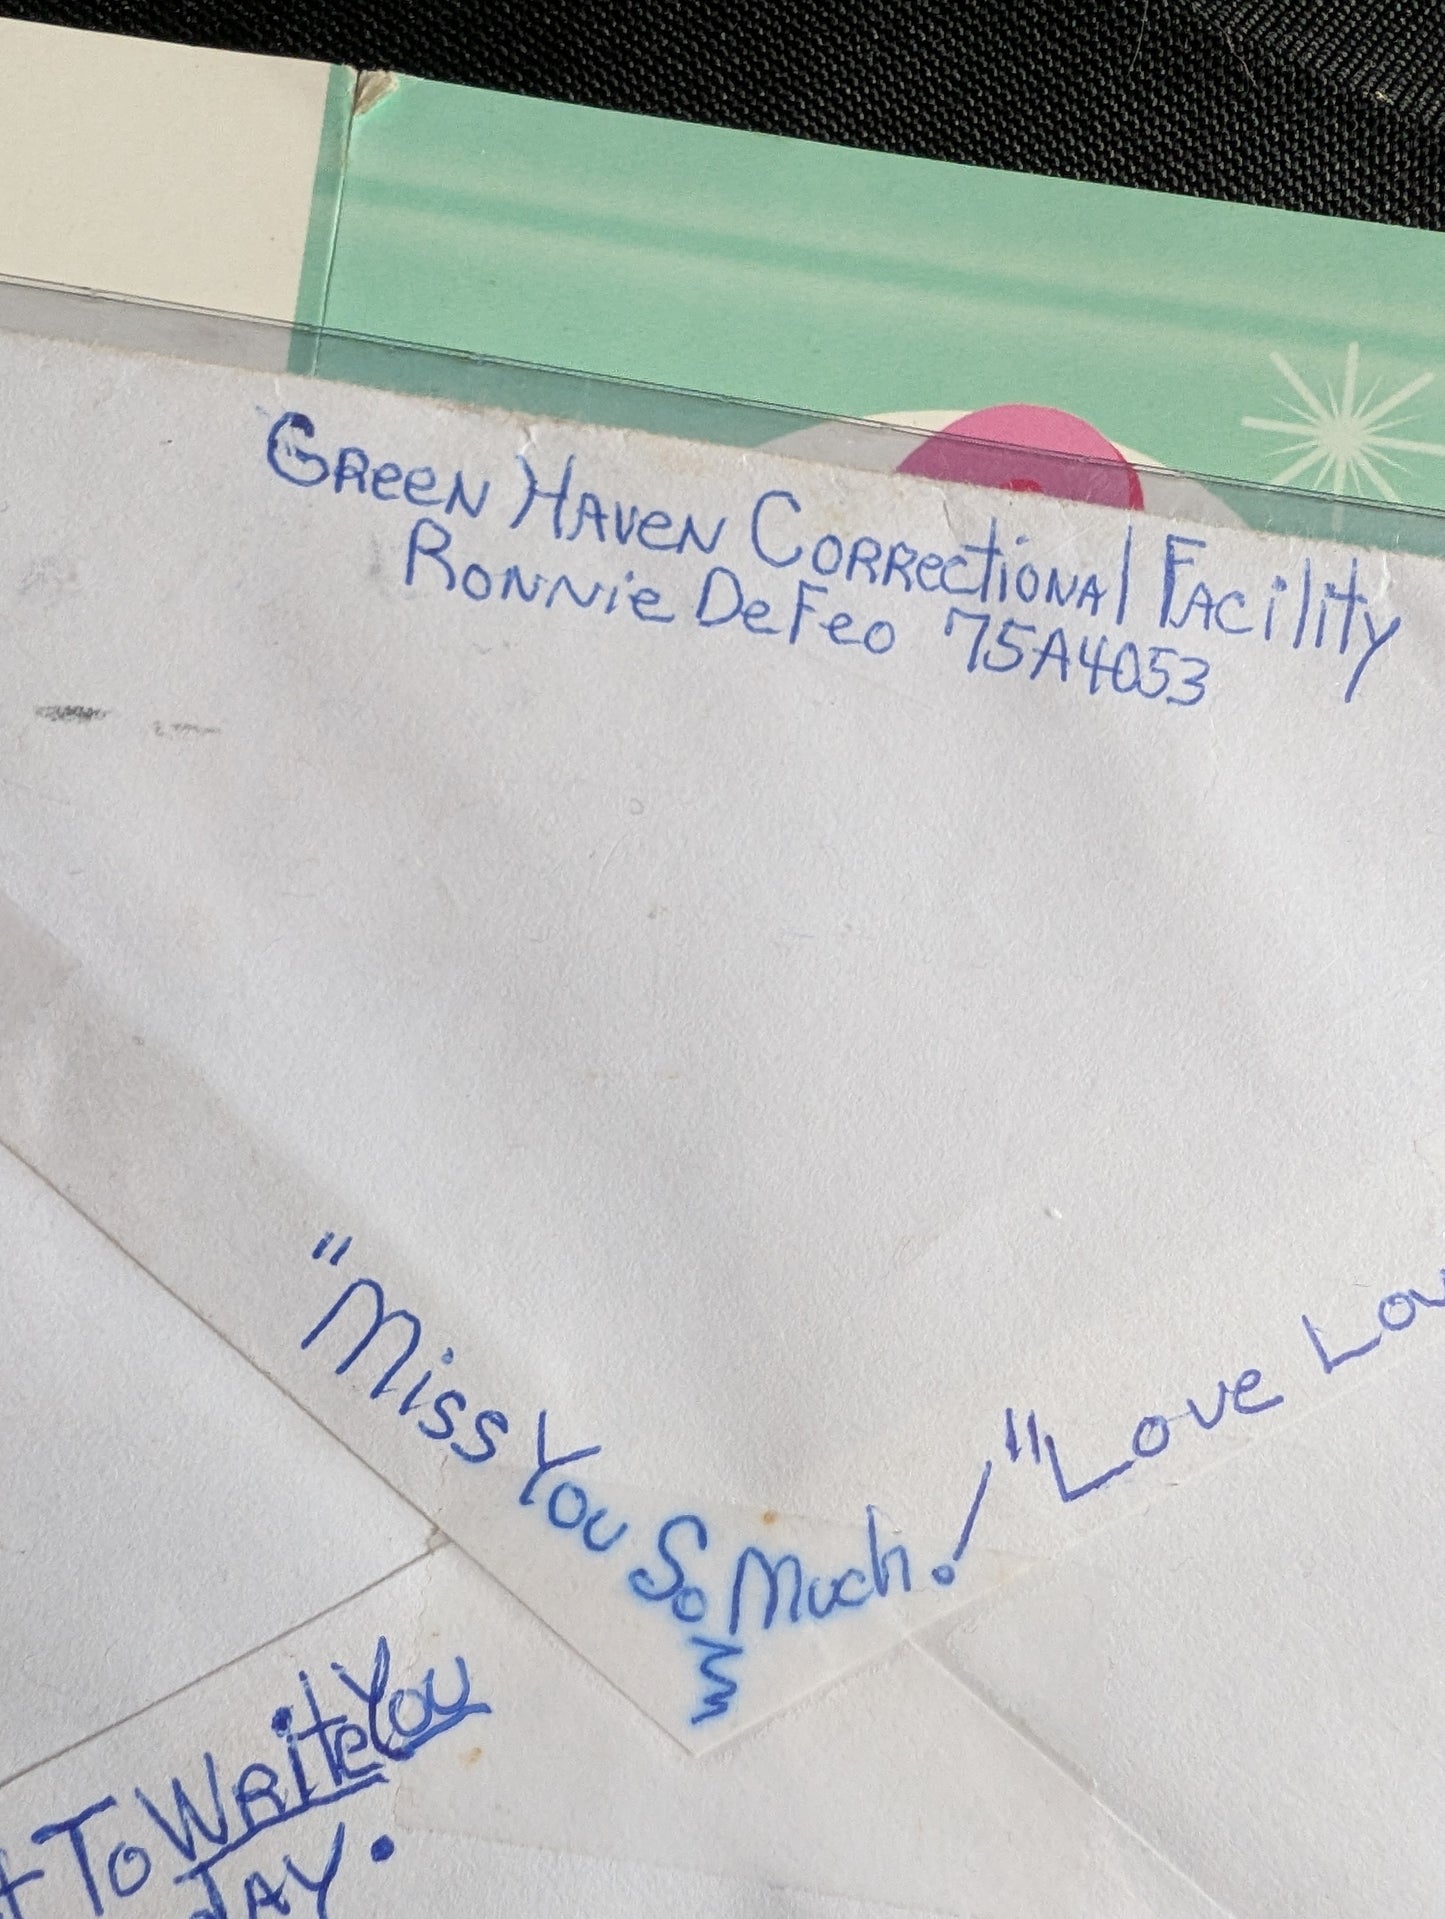 Green Haven Correctional Facility
Ronnie DeFeo 75A4053
"Miss You So Much!
"Love
To Write You